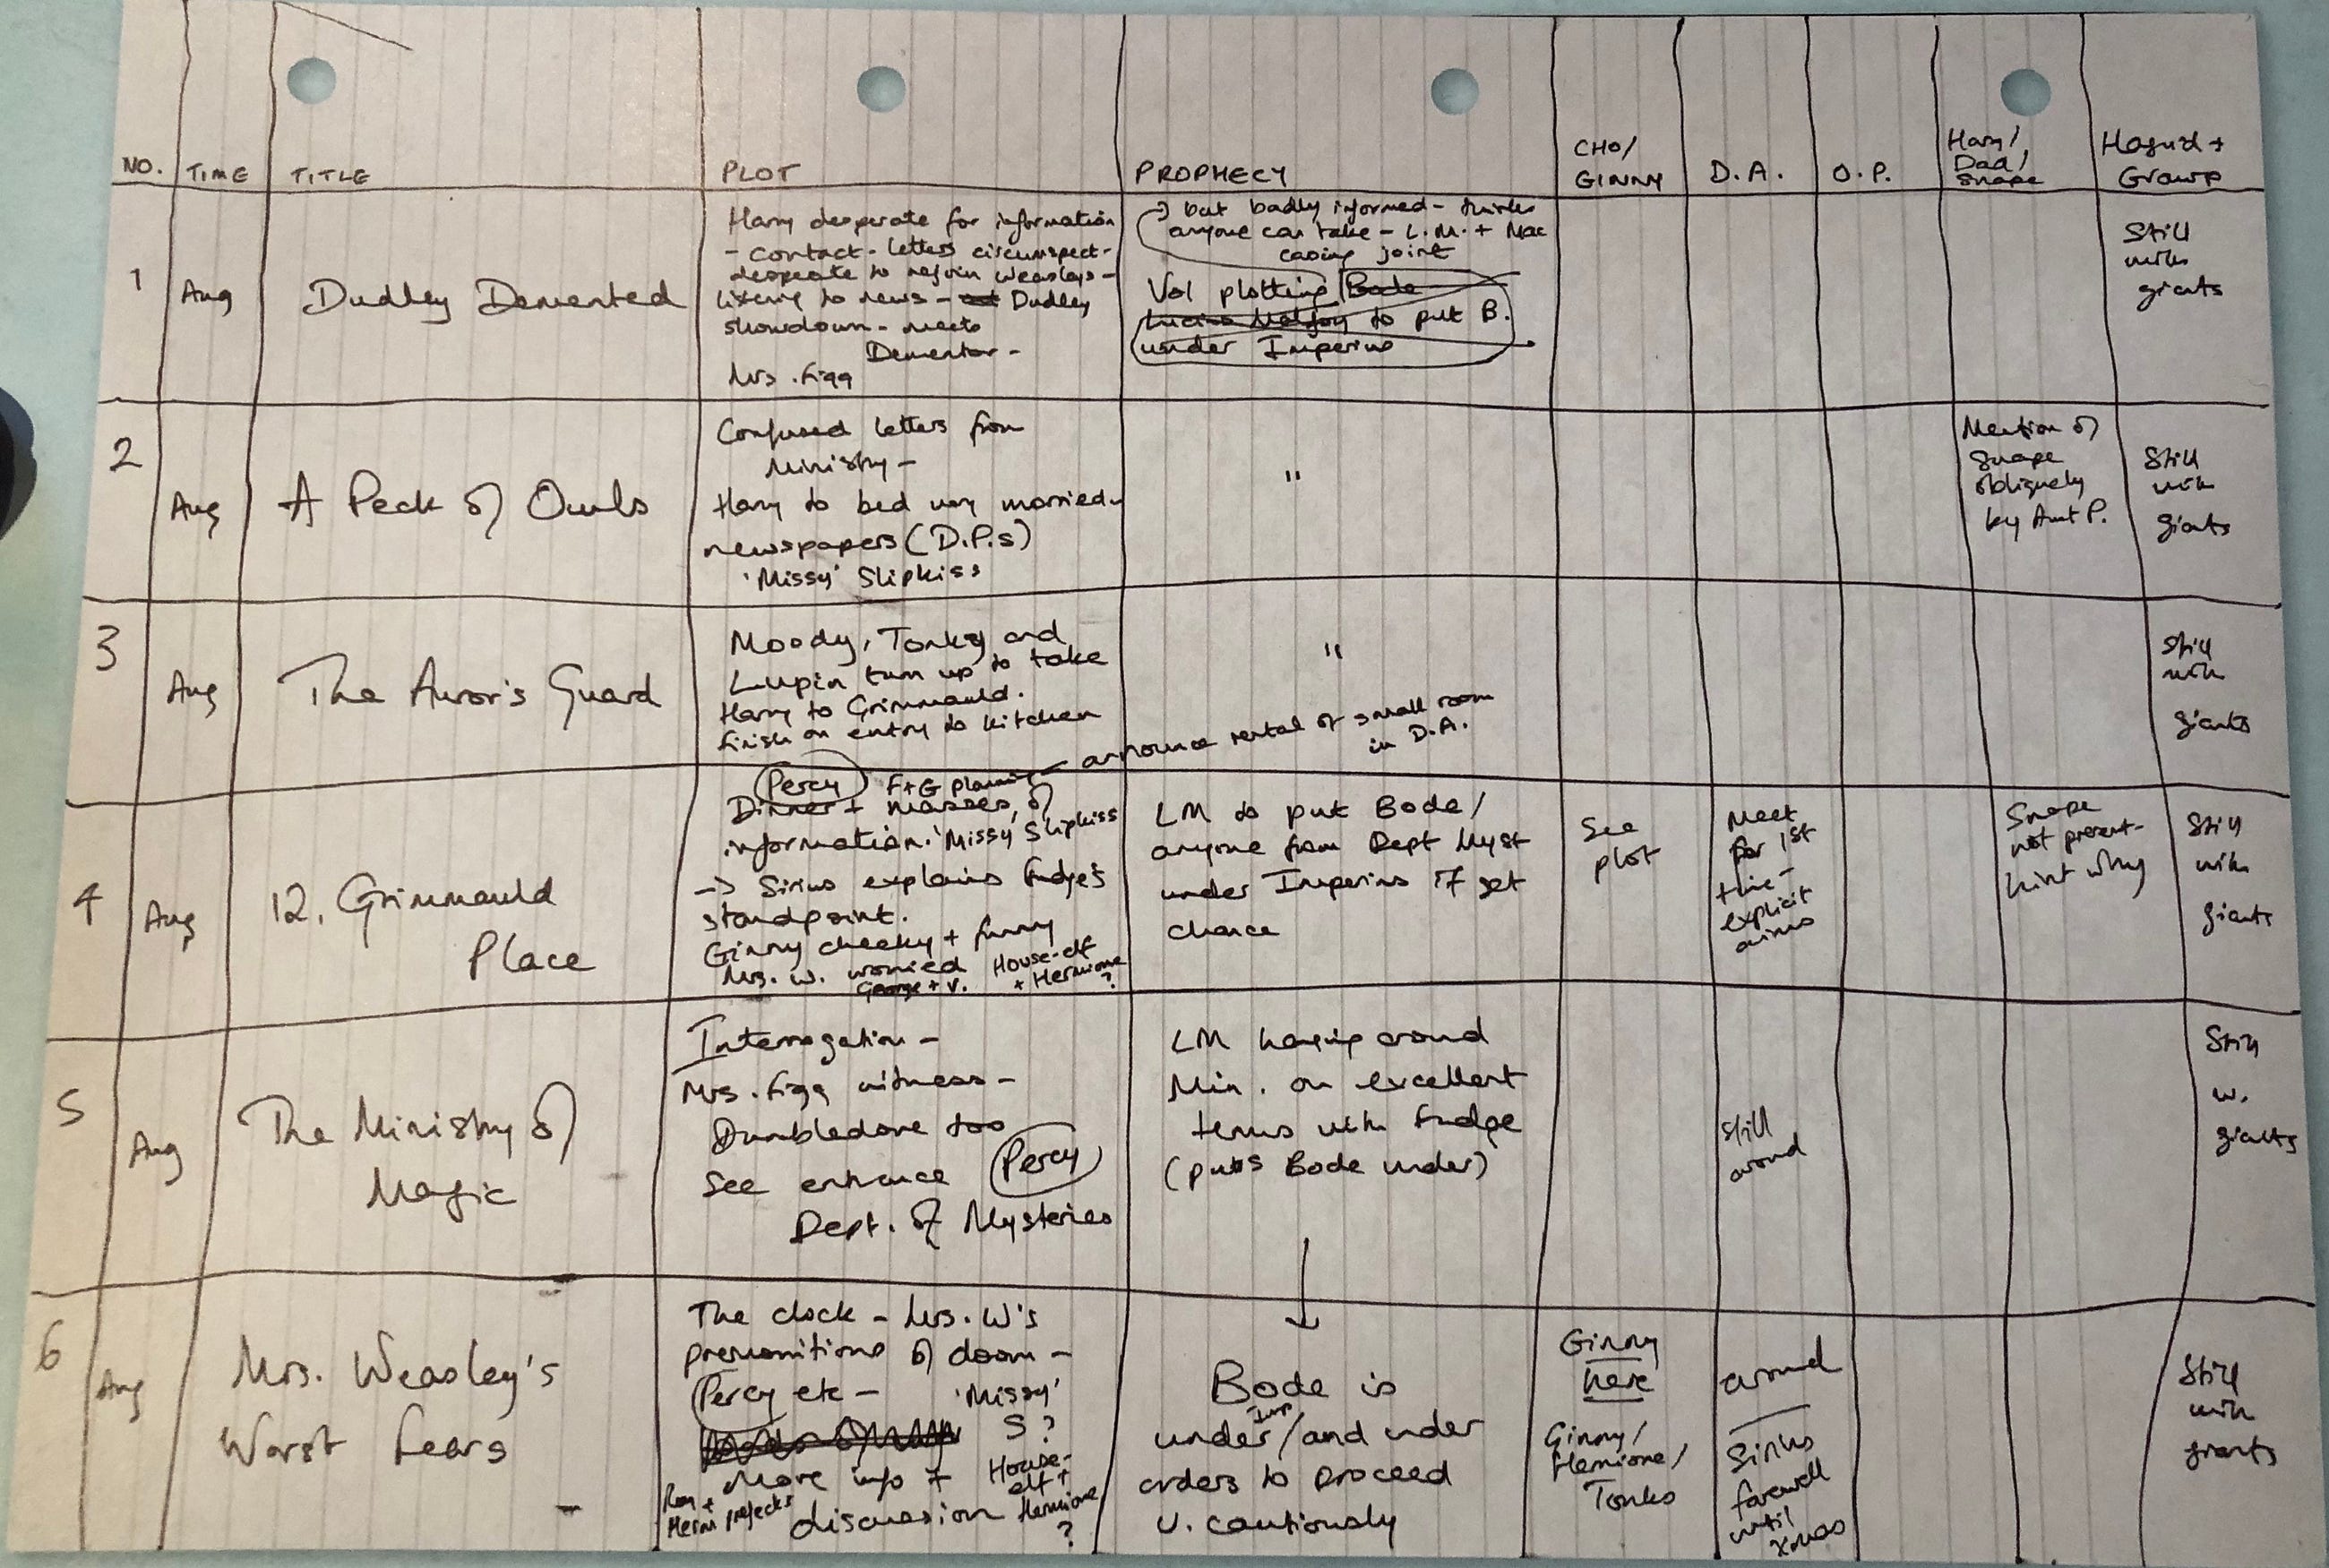 NO. TIME TITLE PLOT PROPHECY CHO/ GINNY D.A. O.P. Harry/ Dad/ Snape Hagrid + Grawp
1
Aug
Dudley Demented
Harry desperate for information
- contact - letters circumspect -
desperate to rejoin Weasleys -
listening to news - Dudley
showdown - meets
Dementor -
Mrs. Figg
→ but badly informed - thinks
anyone can take - L.M. + Mac
casing joint
Vol plotting Bode
Lucius Malfoy to put B.
under Imperius
Still
with
giants
2
Aug
A Peck of Owls
Confused letters from
Ministry -
Harry to bed very worried -
newspapers (D.P.s)
'Missy' Slipkiss
"
Mention of
Snape
obliquely
by Aunt P.
Still
with
giants
3
Aug
The Auror's Guard
Moody, Tonks and
Lupin turn up to take
Harry to Grimmauld.
finish on entry to kitchen
"
Still
with
giants
4
Aug
12, Grimmauld
Place
Percy F+G planning - announce rental of small room
in D.A.
Dinner + masses of
information. 'Missy' Slipkiss
-> Sirius explains Fudge's
standpoint.
Ginny cheeky + funny
Mrs. W. worried House-elf
George + V. + Hermione
?
LM to put Bode/
anyone from Dept Myst
under Imperius if get
chance
See
plot
Meet
for 1st
time -
explicit
aims
Snape
not present -
hint why
Still
with
giants
5
Aug
The Ministry of
Magic
Interrogation -
Mrs. Figg witness -
Dumbledore too
See entrance Percy
Dept. of Mysteries
LM hanging around
Min. on excellent
terms with Fudge
(puts Bode under)
still
around
Still
w.
giants
6
Aug
Mrs. Weasley's
Worst Fears
The clock - Mrs. W's
premonitions of doom -
Percy etc - 'Missy'
S?
More info + House-
elf +
Ron +
Herm prefects discussion Hermione
?
Bode is
under Imp/and under
orders to proceed
v. cautiously
Ginny
here
Ginny/
Hermione/
Tonks
around
Sirius
farewell
until
Xmas
Still
with
giants